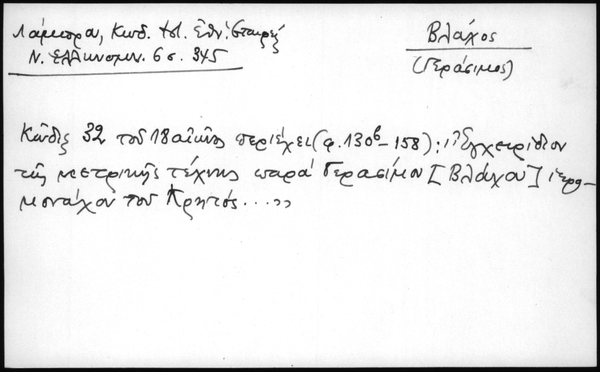 Λάμπρου, Κωδ. Ἱστ. Ἐθν. Ἑταιρ.
Ν. Ἑλληνομν. 6 σ. 345
Βλάχος
(Γεράσιμος)
Κῶδιξ 32 τοῦ 18 αἰῶνος περιέχει (φ. 130β-158): ,,Ἐγχειρίδιον
τῆς μετρικῆς τέχνης παρὰ Γερασίμου [Βλάχου] ἱερο-
μονάχου τοῦ Κρητός...,,